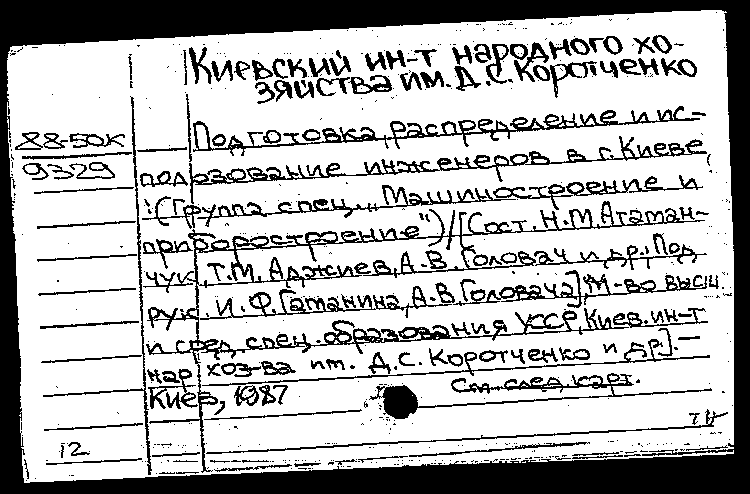 Киевский ин-т народного хо-
зяйства им. Д.С. Коротченко
88-50К
9329
Подготовка, распределение и ис-
пользование инженеров в г. Киеве
: (Группа спец. „Машиностроение и
приборостроение") / [Сост. Н.М. Атаман-
чук, Т.М. Аджиев, А.В. Головач и др.; Под
рук. И.Ф. Гаманина, А.В. Головача]; М-во высш.
и сред. спец. образования УССР, Киев. ин-т
нар. хоз-ва им. Д.С. Коротченко и др]. —
Киев, 1987
См. след. карт.
12